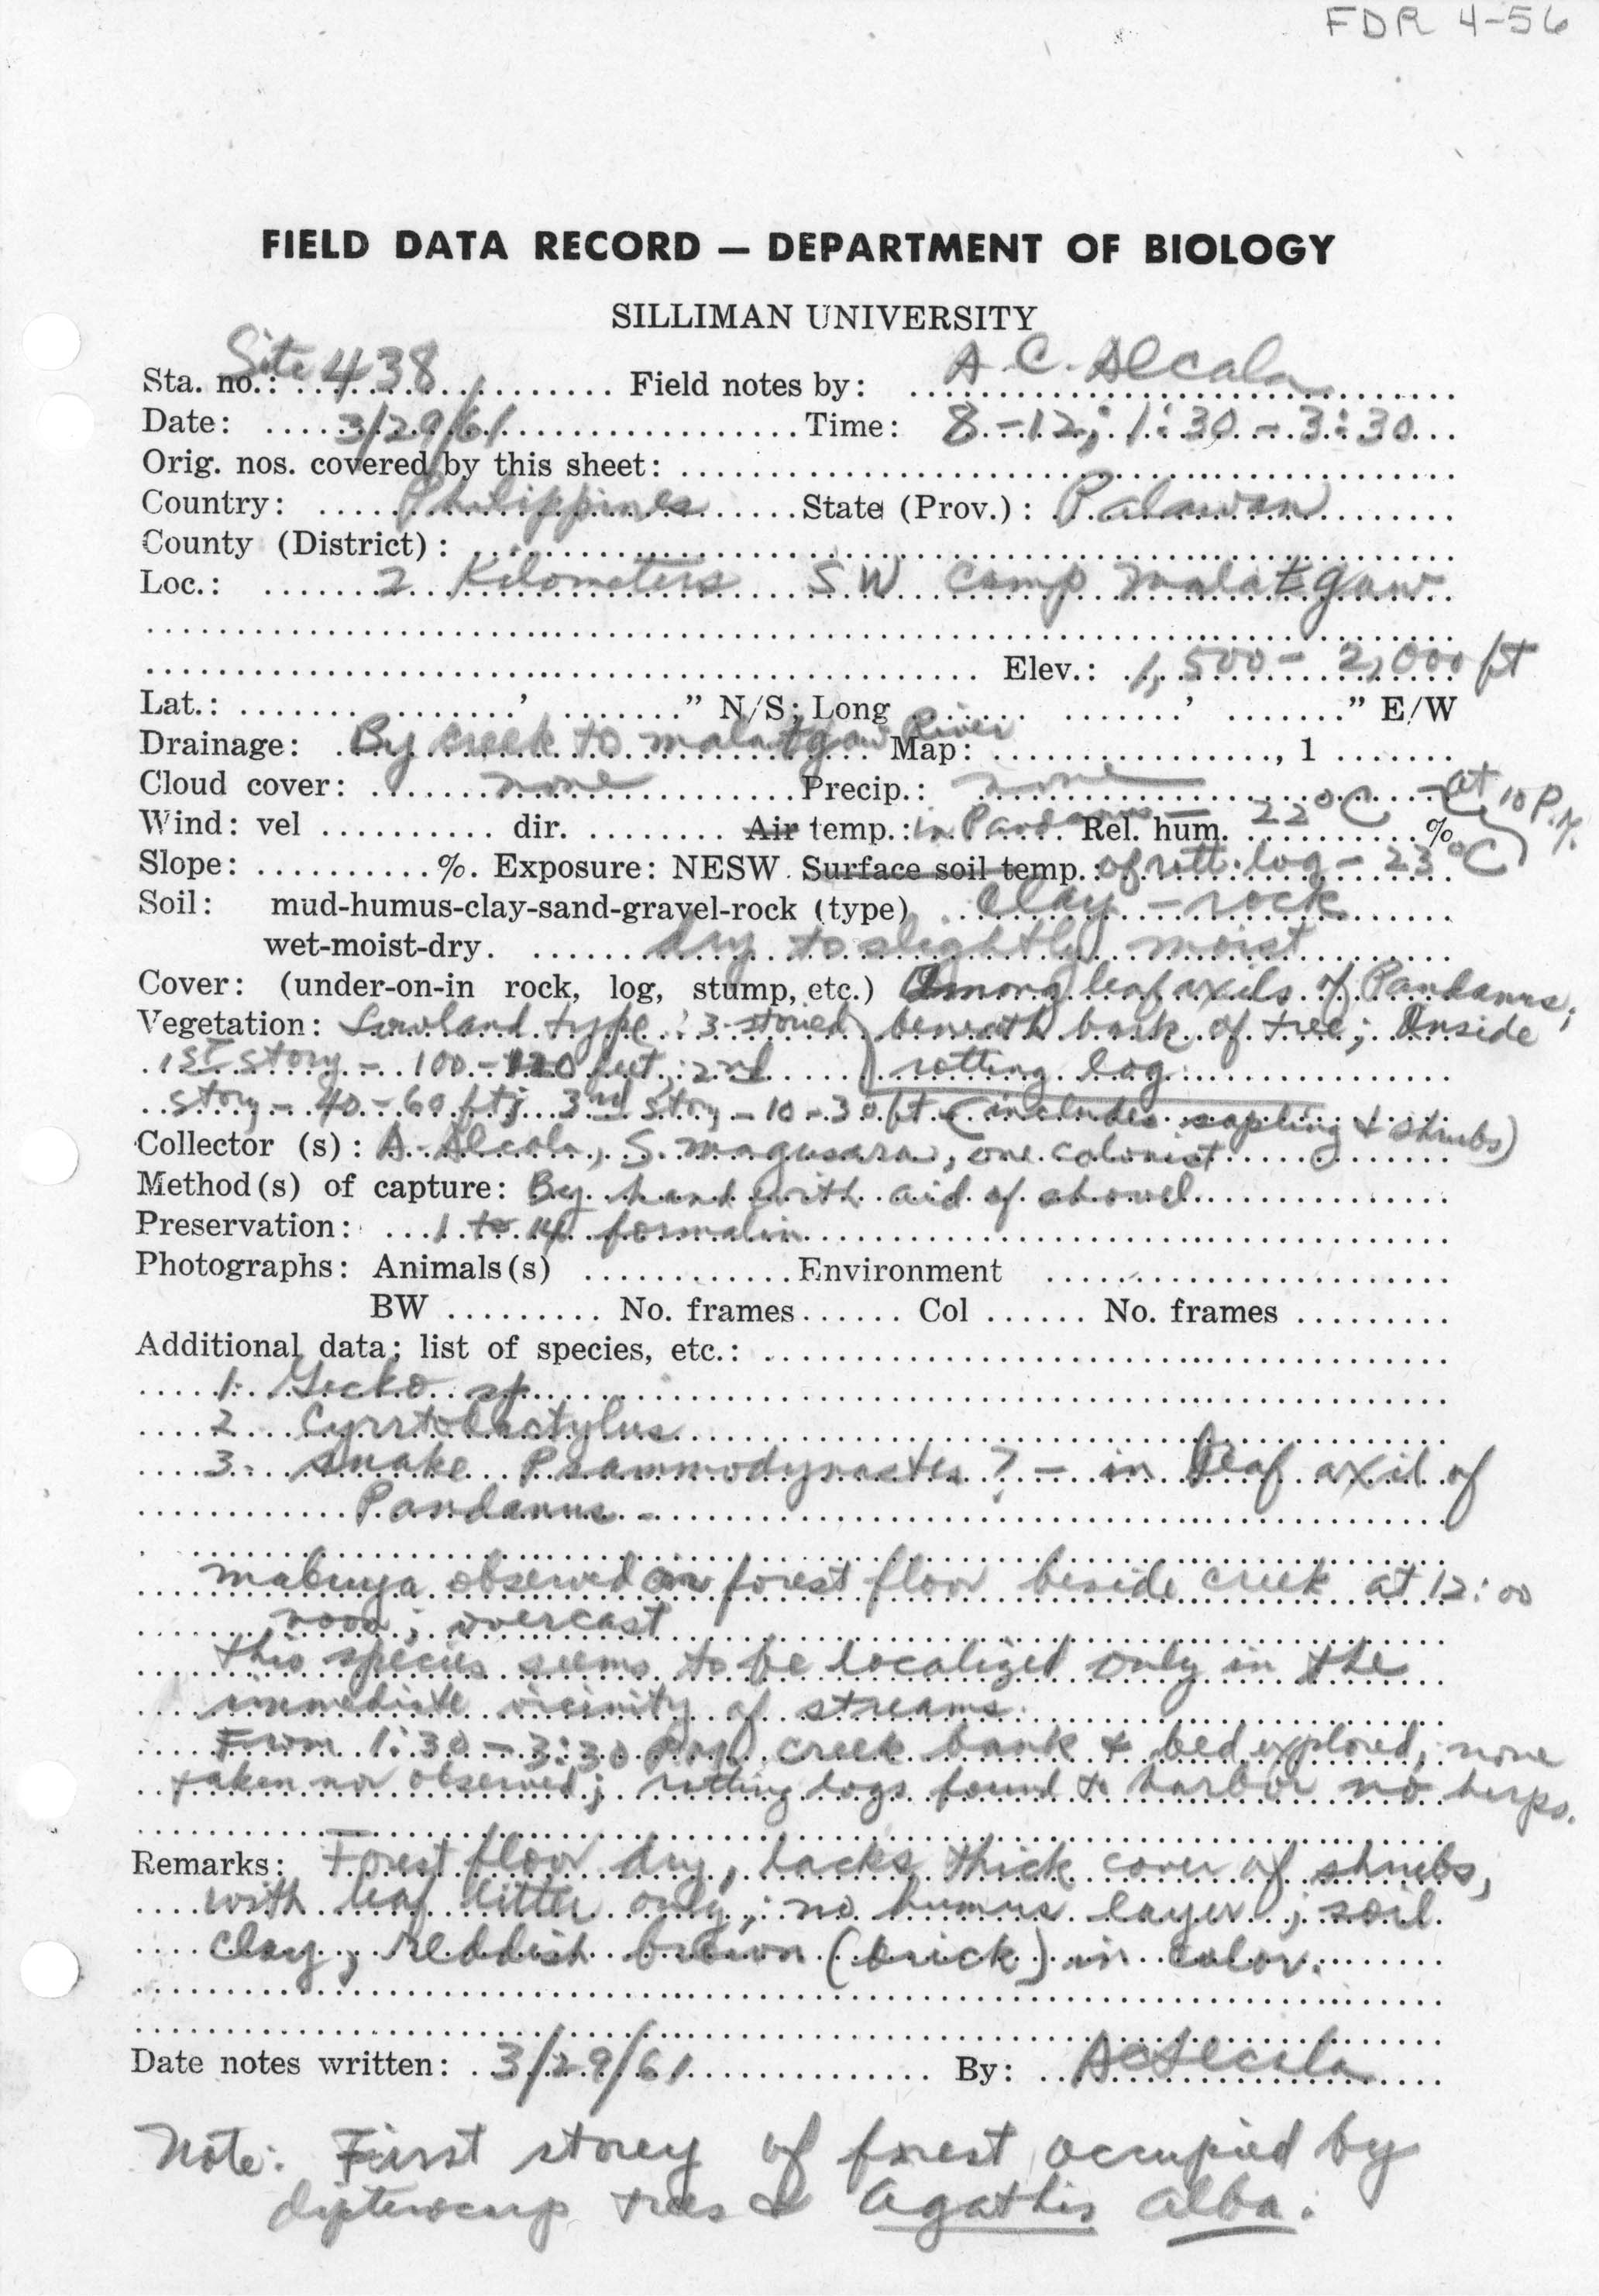 FDR 4-56
FIELD DATA RECORD — DEPARTMENT OF BIOLOGY
SILLIMAN UNIVERSITY
Sta. no.: Site 438 Field notes by: A. C. Alcala
Date: 3/29/61 Time: 8-12; 1:30-3:30
Orig. nos. covered by this sheet:
Country: Philippines State (Prov.): Palawan
County (District):
Loc.: 2 Kilometers SW Camp Malatgaw
Elev.: 1,500-2,000 ft
Lat.: ' " N/S; Long ' " E/W
Drainage: By creek to Malatgaw River Map: , 1
Cloud cover: none Precip.: none
Wind: vel dir. Air temp.: in Pandanus - 22°C Rel. hum. % - at 10 P.M.
Slope: %. Exposure: NESW Surface soil temp.: of rott. log - 23°C
Soil: mud-humus-clay-sand-gravel-rock (type) Clay - rock
wet-moist-dry. dry to slightly moist
Cover: (under-on-in rock, log, stump, etc.) Among leaf axils of Pandanus;
Vegetation: Lowland type: 3-storied beneath bark of tree; Inside
1st story - 100-120 feet; 2nd rotting log
story - 40-60 ft; 3rd story - 10-30 ft (includes sapling & shrubs)
Collector (s): A. Alcala, S. Magusara, one colonist
Method(s) of capture: By hand with aid of shovel
Preservation: 1 to 14 formalin
Photographs: Animals(s) Environment
BW No. frames Col No. frames
Additional data; list of species, etc.:
1. Gecko sp.
2. Cyrrtodactylus
3. Snake Psammodynastes? - in leaf axil of
Pandanus -
Mabuya observed on forest floor beside creek at 12:00
noon; overcast
This species seems to be localized only in the
immediate vicinity of streams.
From 1:30-3:30 P.M. creek bank & bed explored, none
taken nor observed; rotting logs found to harbor no herps.
Remarks: Forest floor dry, lacks thick cover of shrubs,
with leaf litter only; no humus layer; soil
clay, reddish brown (brick) in color.
Date notes written: 3/29/61 By: ACAlcala
Note: First storey of forest occupied by
dipterocarp trees & Agathis alba.